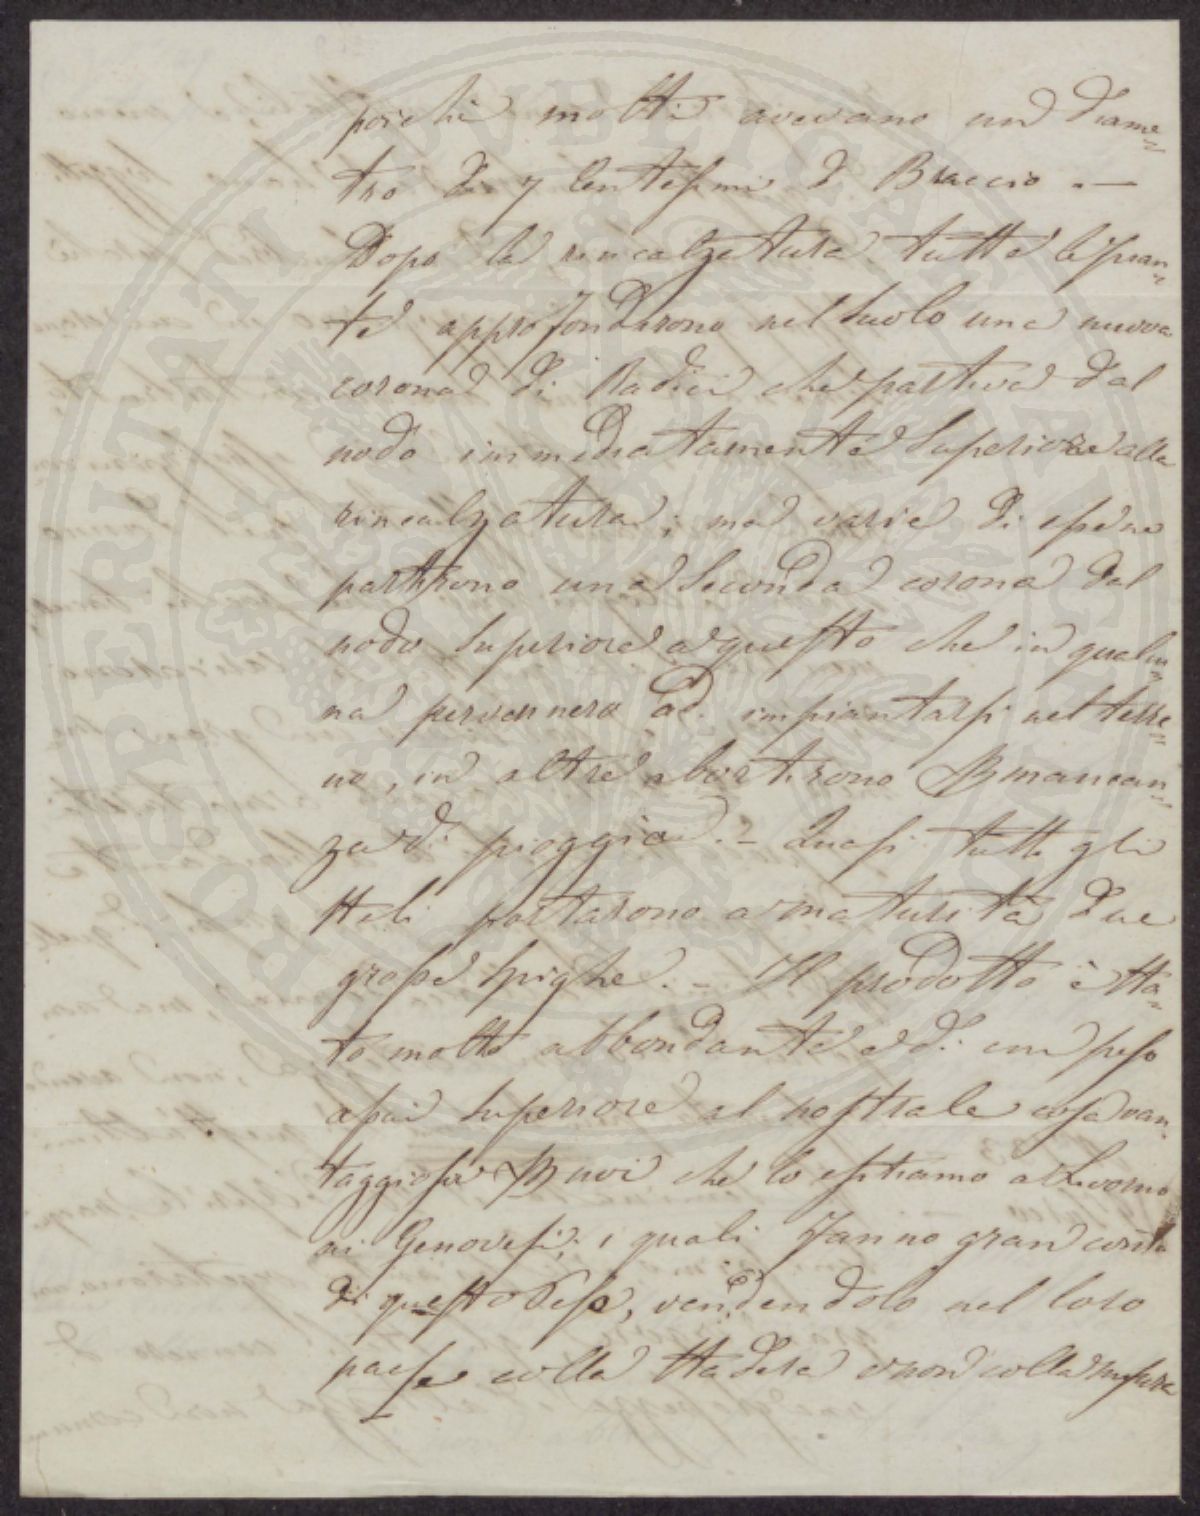 poichè molti avevano un diame=
tro di 7 Centesimi di Braccio. —
Dopo la rincalzatura tutte le pian=
te approfondarono nel suolo una nuova
corona di Radici che partiva dal
nodo immediatamente superiore alla
rincalzatura; ma varie di esse ne
partirono una seconda corona dal
nodo superiore a questo che in qualu=
na pervennero ad impiantarsi nel terre=
no, in altre abortirono per mancan=
za di pioggia. – Quasi tutti gli
steli portarono a maturità due
grosse spighe. – Il prodotto è sta=
to molto abbondante e di un peso
assai superiore al nostrale cosa van=
taggiosa per noi che lo esitiamo a Livorno
ai Genovesi, i quali fanno gran conto
di questo Peso, vendendolo nel loro
paese colla stadera e non colla misura
PROSPERITATI PUBLICAE AUGENDAE